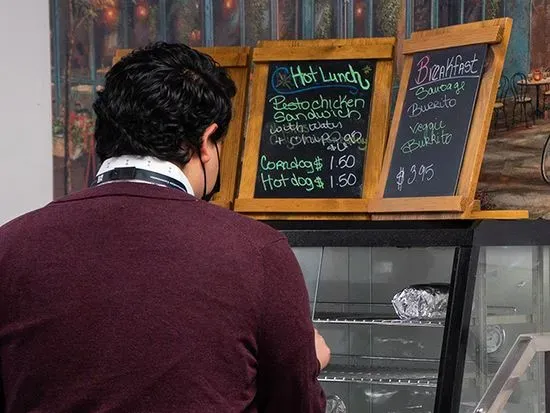 Hot Lunch
Pesto chicken
Sandwich
with water
Corndog $ 1.50
Hotdog $ 1.50
Breakfast
Sausage
Burrito
Veggie
Burrito
$ 3.95